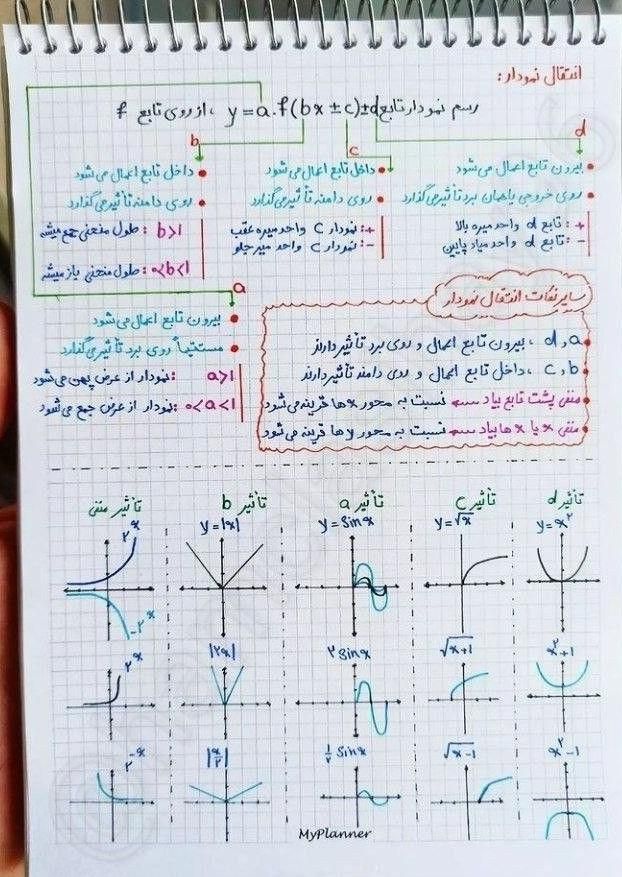 انتقال نمودار:
رسم نمودار تابع y = a.f(bx ± c) ± d ، از روی تابع f
d
• بیرون تابع اعمال می شود
• روی خروجی یا همان برد تأثیر می گذارد
+: تابع d واحد میره بالا
−: تابع d واحد میاد پایین
c
• داخل تابع اعمال می شود
• روی دامنه تأثیر می گذارد
+: نمودار c واحد میره عقب
−: نمودار c واحد میره جلو
b
• داخل تابع اعمال می شود
• روی دامنه تأثیر می گذارد
b>1 : طول منحنی جمع میشه
0<b<1 : طول منحنی باز میشه
a
• بیرون تابع اعمال می شود
• مستقیماً روی برد تأثیر می گذارد
a>1 : نمودار از عرض پهن می شود
0<a<1 : نمودار از عرض جمع می شود
سایر نکات انتقال نمودار
• d و a ، بیرون تابع اعمال و روی برد تأثیر دارند
• c و b ، داخل تابع اعمال و روی دامنه تأثیر دارند
• منفی پشت تابع بیاد نسبت به محور x ها قرینه می شود
• منفی x یا x ها بیاد نسبت به محور y ها قرینه می شود
تأثیر d
y = x²
x²+1
x²−1
تأثیر c
y = √x
√x+1
√x−1
تأثیر a
y = Sinx
۲ Sinx
½ Sinx
تأثیر b
y = |x|
|۲x|
|x/۲|
تأثیر منفی
۲ˣ
−۲ˣ
۲ˣ
۲⁻ˣ
MyPlanner